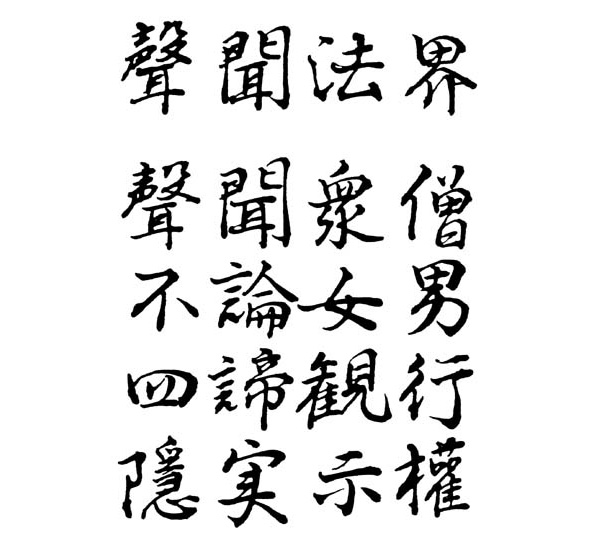 聲聞法界
聲聞眾僧
不論女男
四諦観行
隱实示權